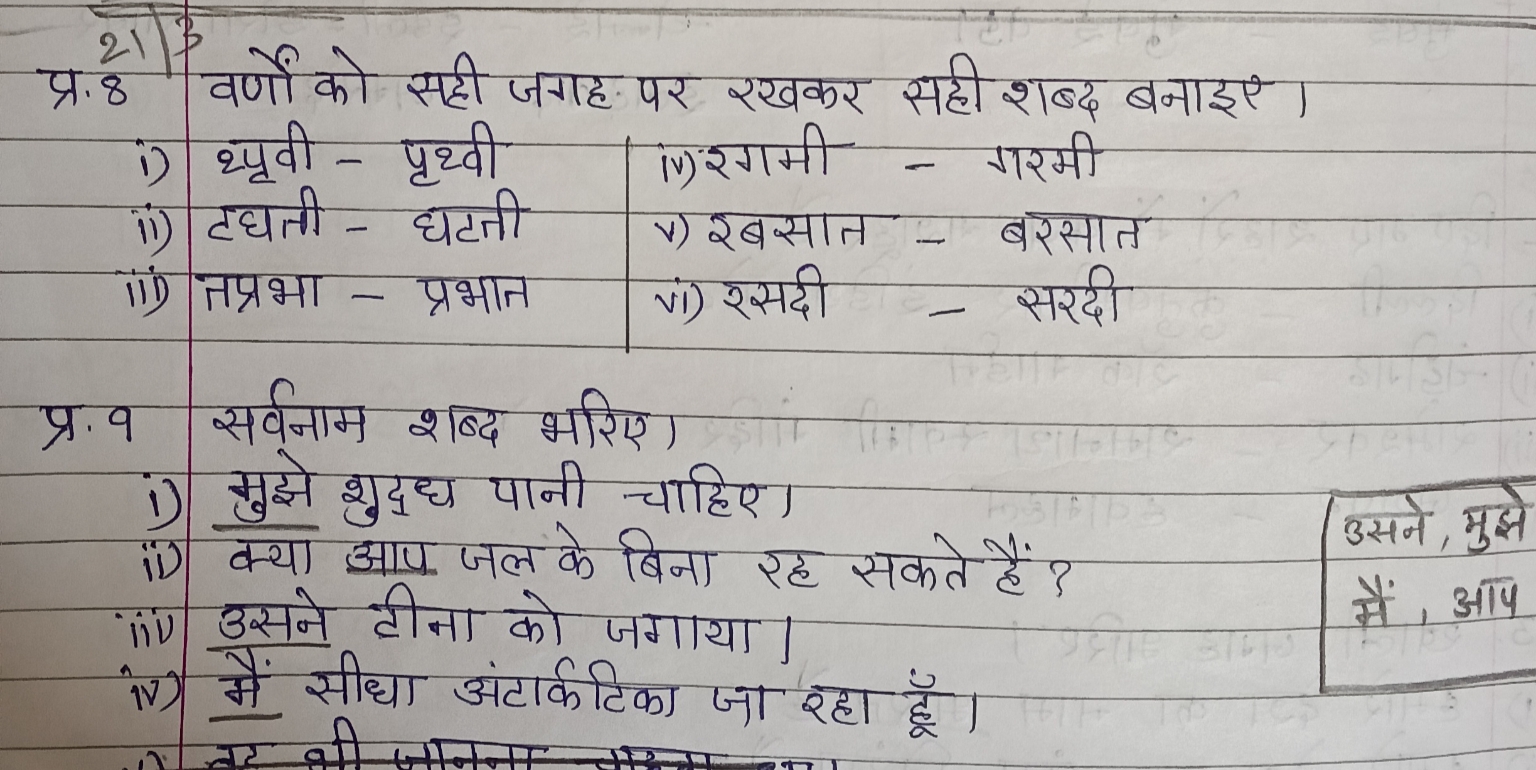 21/3
प्र.8 वर्णों को सही जगह पर रखकर सही शब्द बनाइए।
i) थ्पृवी - पृथ्वी
ii) टघती - घटती
iii) तप्रभा - प्रभात
iv) रगमी - गरमी
v) रबसात - बरसात
vi) रसदी - सरदी
प्र.१ सर्वनाम शब्द भरिए।
i) मुझे शुद्ध पानी चाहिए।
ii) क्या आप जल के बिना रह सकते हैं?
iii) उसने टीना को जगाया।
iv) मैं सीधा अंटार्कटिका जा रहा हूँ।
उसने, मुझे
मैं, आप